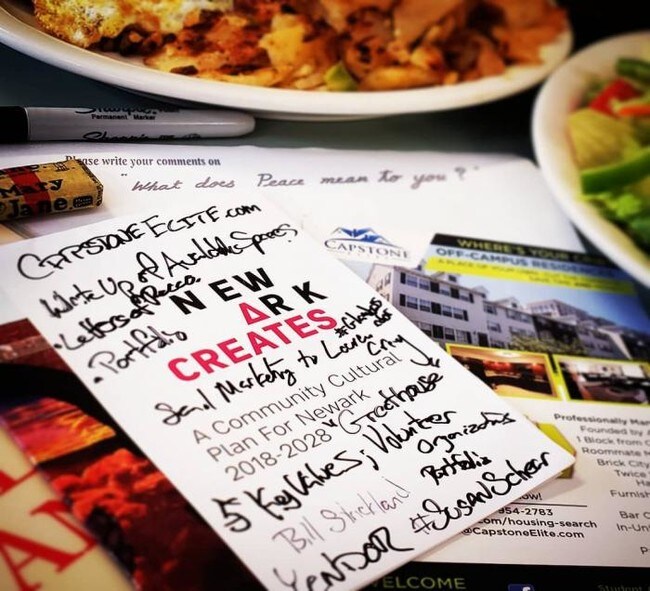 Sharpie
Permanent Marker
Sharpie
Please write your comments on
"What does Peace mean to you?"
Mary
Jane
CAPSTONEELITE.com
Write Up of Available Spaces
• Letters of Recco
• Portfolio
NEW
ARK
CREATES
Send Marketing to
A Community Cultural
Plan For Newark
2018-2028
Greathouse
5 Key Values; Volunteer
Organizations
Portfolio
Bill Strickland
#SusanScherr
VENDOR
CAPSTONE
WHERE'S YOUR
OFF-CAMPUS RESIDENCES
Professionally Man
Founded by
1 Block from C
Roommate M
Brick City
Twice
Ha
Furnish
Bar C
In-Un
P
ow!
954-2783
.com/housing-search
@CapstoneElite.com
ELCOME